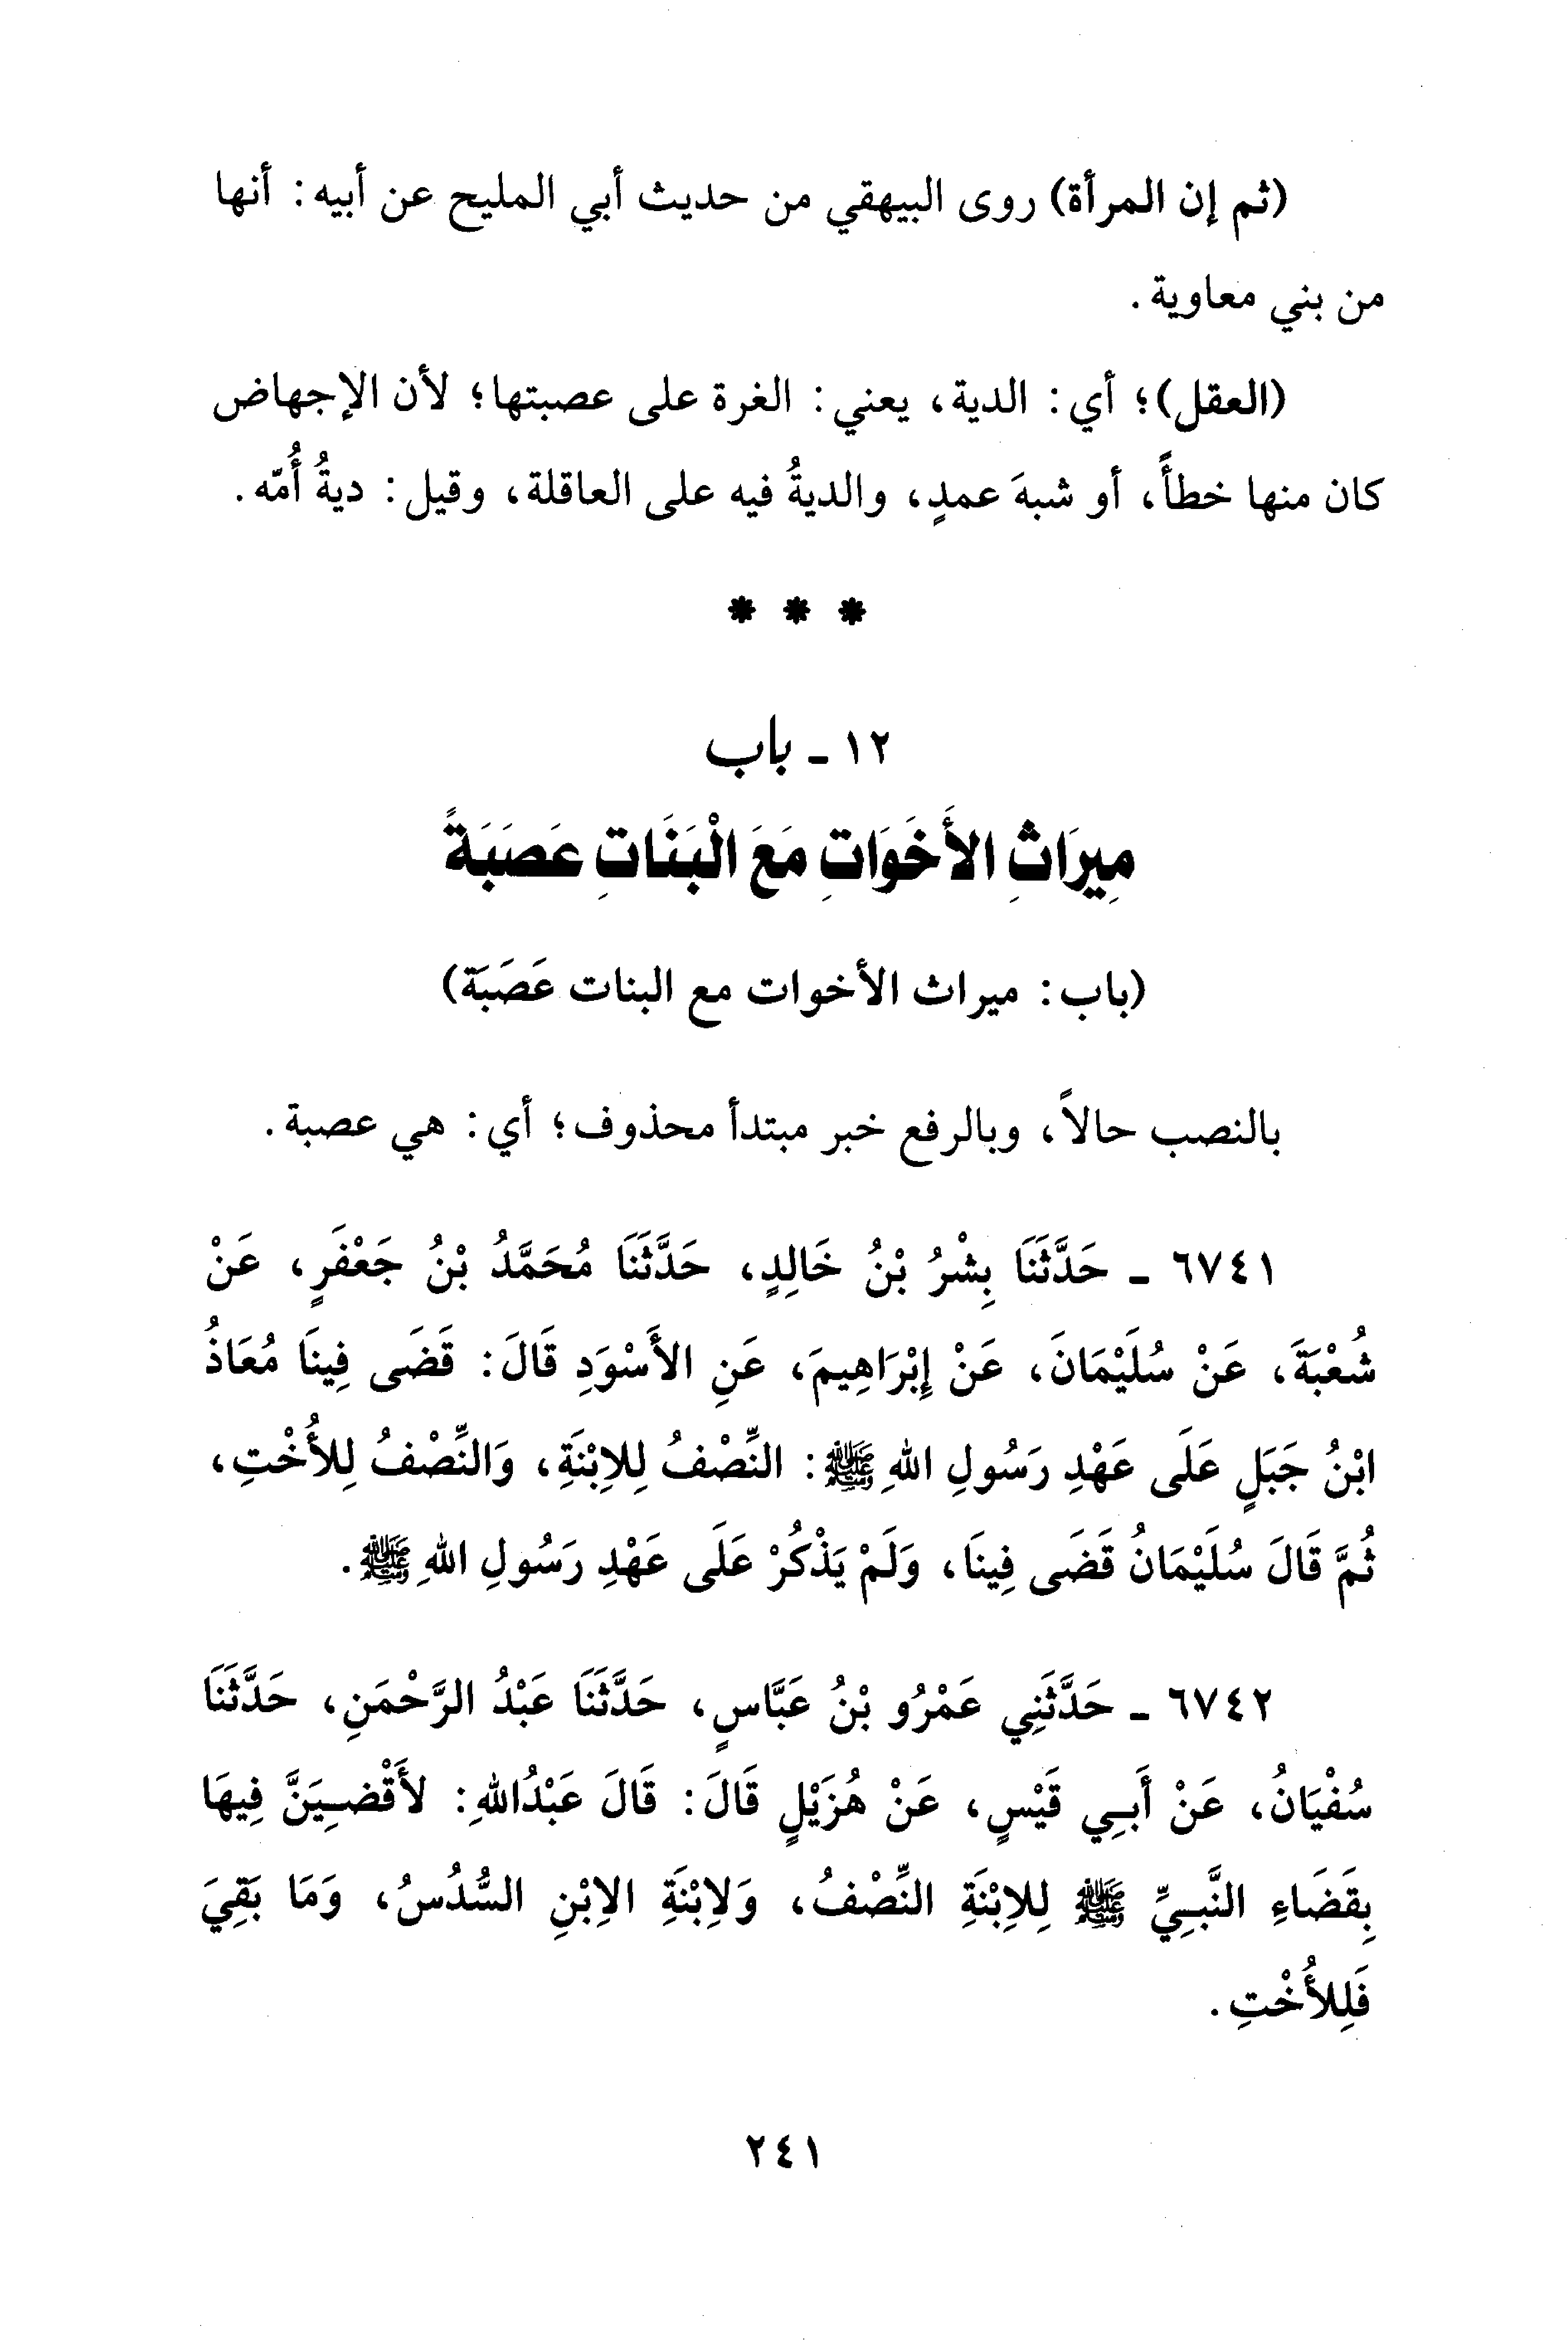 (ثم إن المرأة) روى البيهقي من حديث أبي المليح عن أبيه: أنها
من بني معاوية.
(العقل)؛ أي: الدية، يعني: الغرة على عصبتها؛ لأن الإجهاض
كان منها خطأً، أو شبهَ عمدٍ، والديةُ فيه على العاقلة، وقيل: ديةُ أُمّه.
* * *
١٢ ـ باب
مِيرَاثِ الأَخَوَاتِ مَعَ الْبَنَاتِ عَصَبَةً
(باب: ميراث الأخوات مع البنات عَصَبَة)
بالنصب حالاً، وبالرفع خبر مبتدأ محذوف؛ أي: هي عصبة.
٦٧٤١ ـ حَدَّثَنَا بِشْرُ بْنُ خَالِدٍ، حَدَّثَنَا مُحَمَّدُ بْنُ جَعْفَرٍ، عَنْ
شُعْبَةَ، عَنْ سُلَيْمَانَ، عَنْ إِبْرَاهِيمَ، عَنِ الأَسْوَدِ قَالَ: قَضَى فِينَا مُعَاذُ
ابْنُ جَبَلٍ عَلَى عَهْدِ رَسُولِ اللهِ ﷺ: النِّصْفُ لِلاِبْنَةِ، وَالنِّصْفُ لِلأُخْتِ،
ثُمَّ قَالَ سُلَيْمَانُ قَضَى فِينَا، وَلَمْ يَذْكُرْ عَلَى عَهْدِ رَسُولِ اللهِ ﷺ.
٦٧٤٢ ـ حَدَّثَنِي عَمْرُو بْنُ عَبَّاسٍ، حَدَّثَنَا عَبْدُ الرَّحْمَنِ، حَدَّثَنَا
سُفْيَانُ، عَنْ أَبِي قَيْسٍ، عَنْ هُزَيْلٍ قَالَ: قَالَ عَبْدُاللهِ: لأَقْضِيَنَّ فِيهَا
بِقَضَاءِ النَّبِيِّ ﷺ لِلاِبْنَةِ النِّصْفُ، وَلاِبْنَةِ الاِبْنِ السُّدُسُ، وَمَا بَقِيَ
فَلِلأُخْتِ.
٢٤١